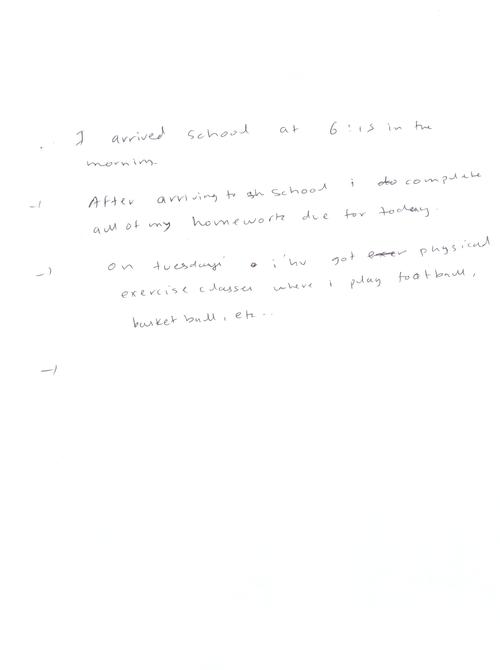 . I arrived school at 6:15 in the
morning.
-) After arriving to sh school i do complete
all of my homework due for today.
-) On tuesdays i've got exer physical
exercise classes where i play football,
basketball, etc..
-)